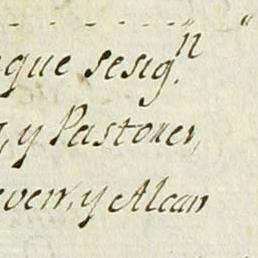 que sesig.n
, y Pastorer,
overr, y Alcarr